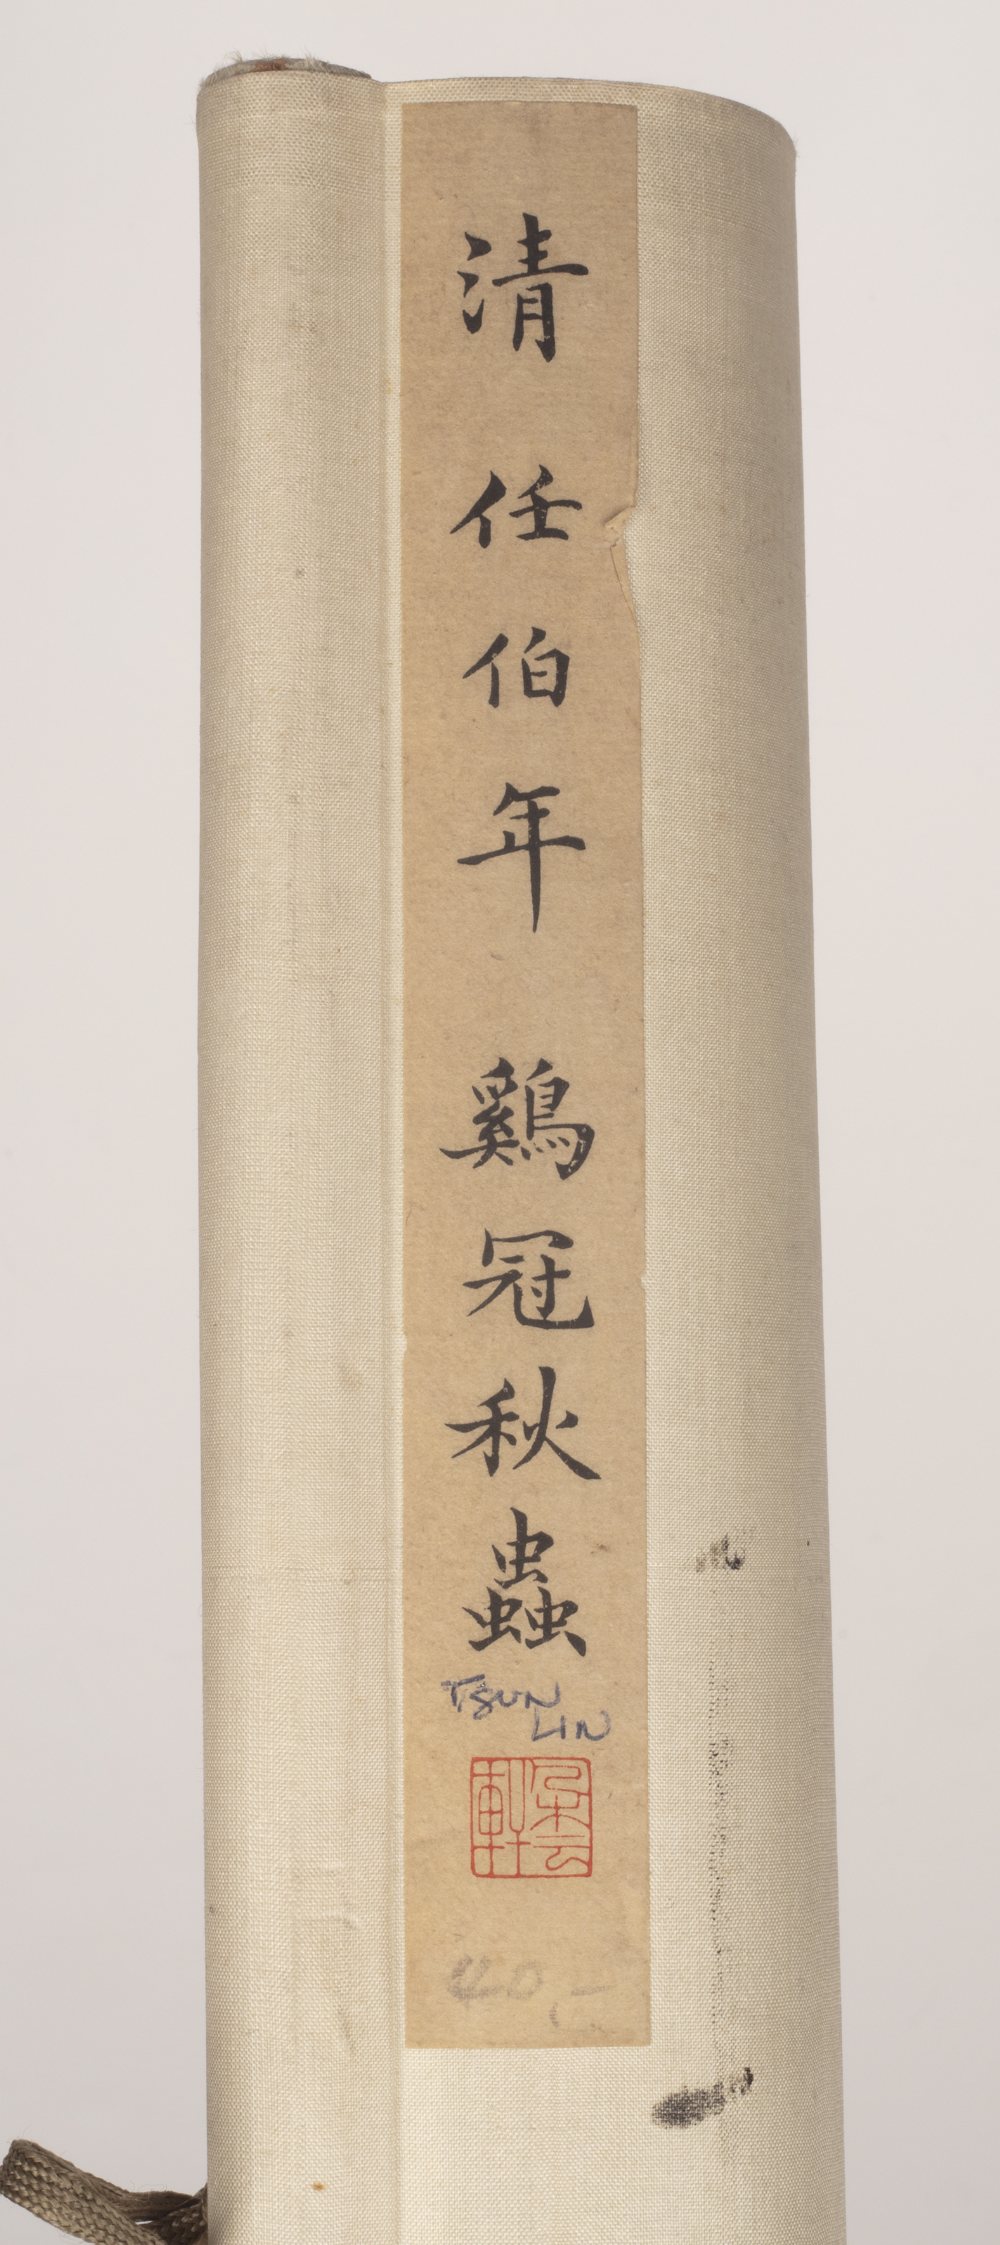 清 任伯年 鷄冠秋蟲
TSUN
LIN
朵云
軒
40,-